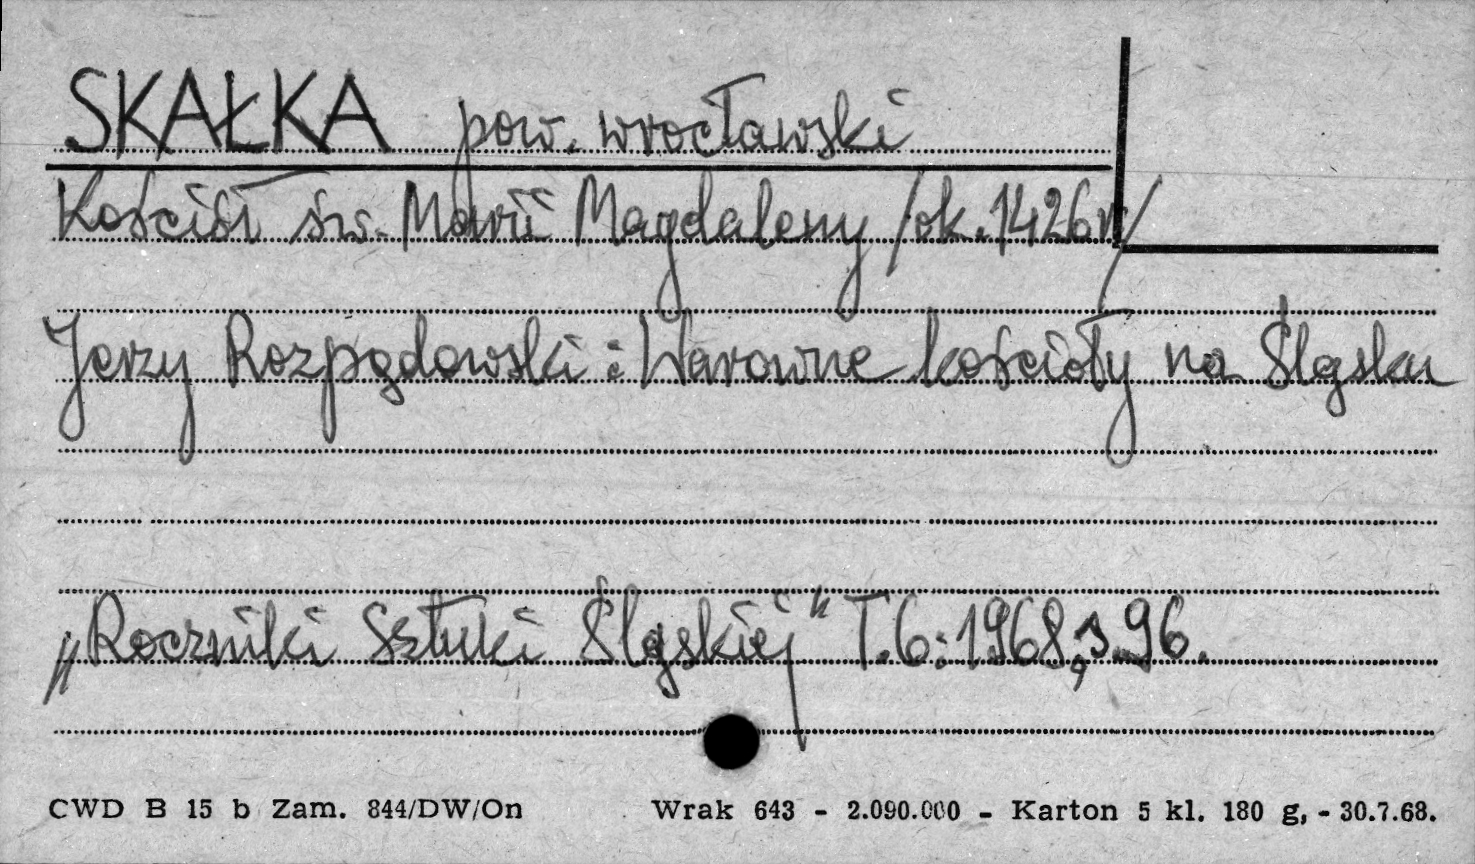 SKAŁKA pow. wrocławski
Kościół św. Marii Magdaleny /ok. 1426 r/
Jerzy Rozpędowski: Warowne kościoły na Śląsku
„Roczniki Sztuki Śląskiej" T.6:1968, s. 96.
CWD B 15 b Zam. 844/DW/On Wrak 643 - 2.090.000 - Karton 5 kl. 180 g, - 30.7.68.